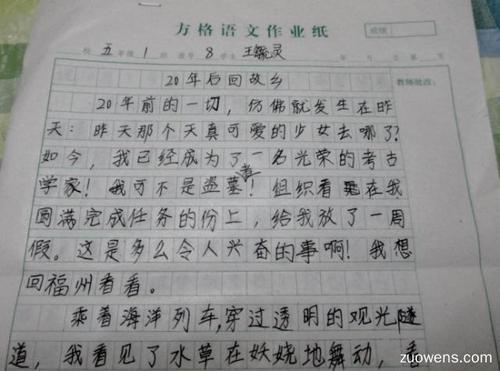 方格语文作业纸
成绩
校 五 年级 1 班 座号 8 学生 王毓灵 年 月 日 第 页
20年后回故乡
教师批改:
20年前的一切，仿佛就发生在昨
天：昨天那个天真可爱的少女去哪了？
如今，我已经成为了一名光荣的考古
学家！我可不是盗墓者！组织看在我
圆满完成任务的份上，给我放了一周
假。这是多么令人兴奋的事啊！我想
回福州看看。
乘着海洋列车，穿过透明的观光隧
道，我看见了水草在妖娆地舞动，看
zuowens.com